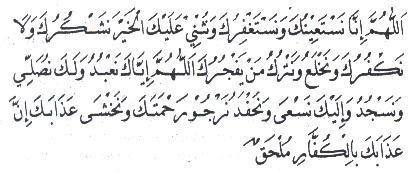 اَللّٰهُمَّ اِنَّا نَسْتَعِيْنُكَ وَنَسْتَغْفِرُكَ وَنُثْنِيْ عَلَيْكَ الْخَيْرَ نَشْكُرُكَ وَلَا
نَكْفُرُكَ وَنَخْلَعُ وَنَتْرُكُ مَنْ يَفْجُرُكَ اَللّٰهُمَّ اِيَّاكَ نَعْبُدُ وَلَكَ نُصَلِّيْ
وَنَسْجُدُ وَاِلَيْكَ نَسْعٰى وَنَحْفِدُ نَرْجُوْ رَحْمَتَكَ وَنَخْشٰى عَذَابَكَ اِنَّ
عَذَابَكَ بِالْكُفَّارِ مُلْحَقٌ